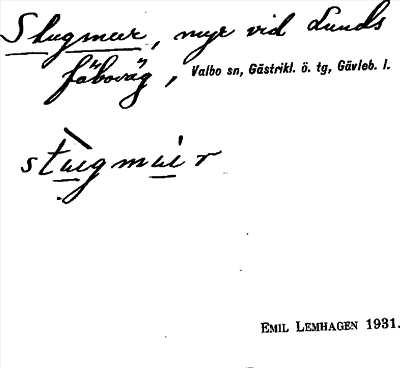 Slugmur, myr vid Lunds
fäboväg, Valbo sn, Gästrikl. ö. tg, Gävleb. l.
EMIL LEMHAGEN 1931.